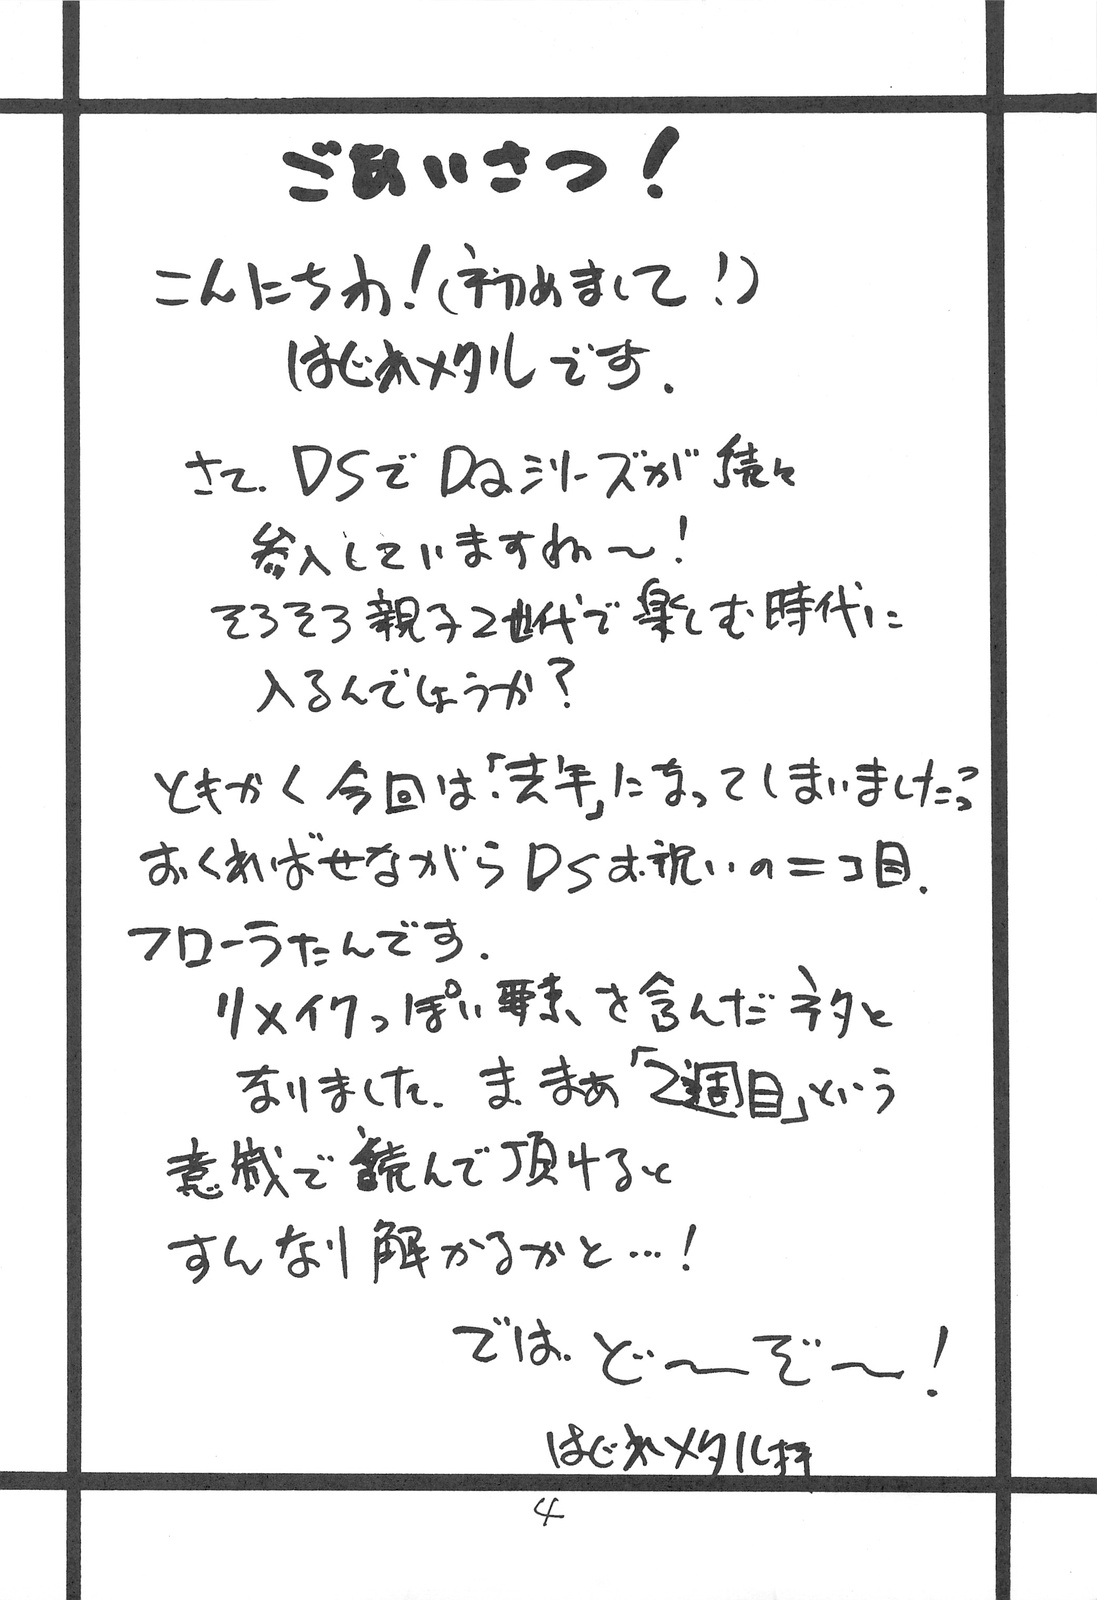 ごあいさつ！
こんにちわ！（初めまして！）
はじれメタルです.
さて. DSでDQシリーズが続々
参入していますね〜！
そろそろ親子2世代で楽しむ時代に
入るんでしょうか？
ともかく今回は「去年」になってしまいましたっ
おくればせながらDSお祝いの二コ目.
フローラたんです.
リメイクっぽい要素を含んだネタと
なりました. ま. まあ「2週目」という
意識で読んで頂けると
すんなり解かるかと…！
では. ど〜ぞ〜！
はじれメタル拝
4